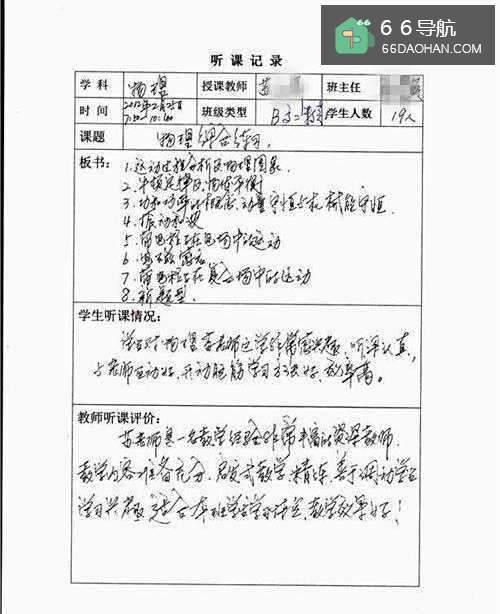 66导航
66DAOHAN.COM
听课记录
学科 物理 授课教师 苏 班主任
时间 班级类型 学生人数 19人
课题 物理综合练习
板书:
1.运动过程分析及物理图象
2.牛顿定律及物体平衡
3.功和功率的概念,动量守恒与机械能守恒.
4.振动和波
5.带电粒子在电场中的运动
6.电磁感应
7.带电粒子在复合场中的运动
8.新题型.
学生听课情况:
学生对物理 老师 学非常感兴趣,听课认真,
与老师互动好,开动脑筋学习方法好,效率高。
教师听课评价:
苏老师是一名教学经验非常丰富的资深教师.
教学内容准备充分,启发式教学,精练,善于调动学生
学习兴趣,适合本班学生学习 ,教学效果好!